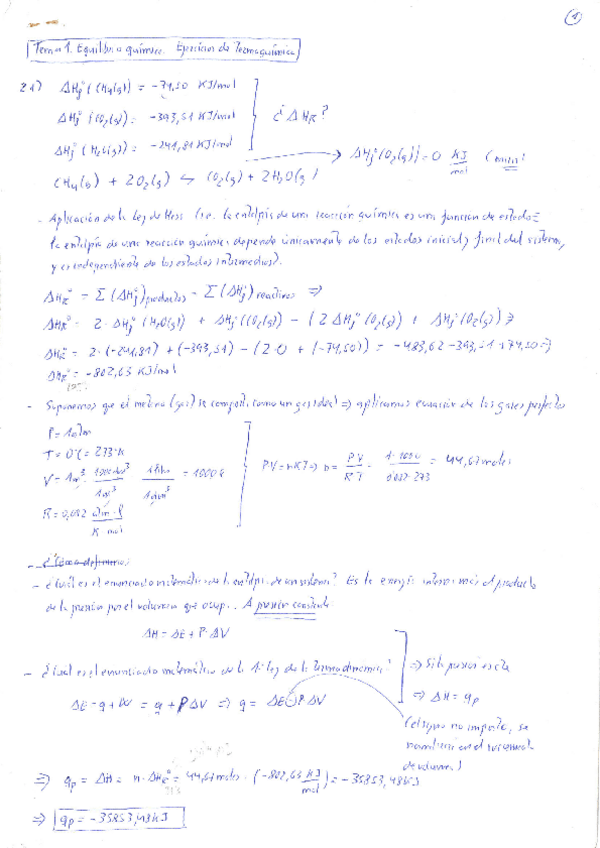 1
Tema 1. Equilibrio químico. Ejercicios de Termoquímica
21) ΔHf° (CH4(g)) = -74,50 KJ/mol
ΔHf° (CO2(g)) = -393,51 KJ/mol
¿ΔHR?
ΔHf° (H2O(g)) = -241,81 KJ/mol
ΔHf° (O2(g)) = 0 KJ/mol
CH4(g) + 2O2(g) ⇆ CO2(g) + 2H2O(g)
- Aplicación de la Ley de Hess (i.e. la entalpía de una reacción química es una función de estado =
la entalpía de una reacción química depende únicamente de los estados inicial y final del sistema,
y es independiente de los estados intermedios).
ΔHR° = Σ(ΔHf°)productos - Σ(ΔHf°)reactivos ⇒
ΔHR° = 2·ΔHf°(H2O(g)) + ΔHf°(CO2(g)) - (2ΔHf°(O2(g)) + ΔHf°(CH4(g)) ⇒
ΔHR° = 2·(-241,81) + (-393,51) - (2·0 + (-74,50)) = -483,62 - 393,51 + 74,50 ⇒
ΔHR° = -802,63 KJ/mol
- Suponemos que el metano (gas) se comporta como un gas ideal ⇒ aplicamos ecuación de los gases perfectos
P = 1 atm
T = 0°C = 273°K
V = 1m³ · 1000 dm³/1m³ · 1 litro/1dm³ = 1000 l
PV = nRT ⇒ n = PV/RT = 1·1000/0'082·273 = 44,67 moles
R = 0,082 atm·l/K mol
- ¿Cuál es el enunciado matemático de la entalpía de un sistema? Es la energía interna más el producto
de la presión por el volumen que ocupa. A presión constante
ΔH = ΔE + P·ΔV
- ¿Cuál es el enunciado matemático de la 1ª ley de la Termodinámica? ⇒ Si la presión es cte
ΔE = q + W = q + PΔV ⇒ q = ΔE - P·ΔV
⇒ ΔH = qp
(el signo no importa, se
en el
de volumen)
⇒ qp = ΔH = n·ΔHR° = 44,67 moles · (-802,63 KJ/mol) = -35853,48 KJ
⇒ qp = -35853,48 KJ